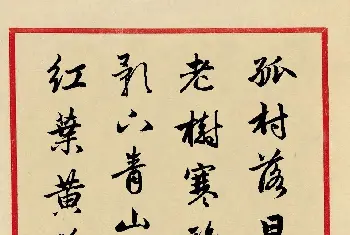 孤村落日
老樹寒
影下青山
红葉黄